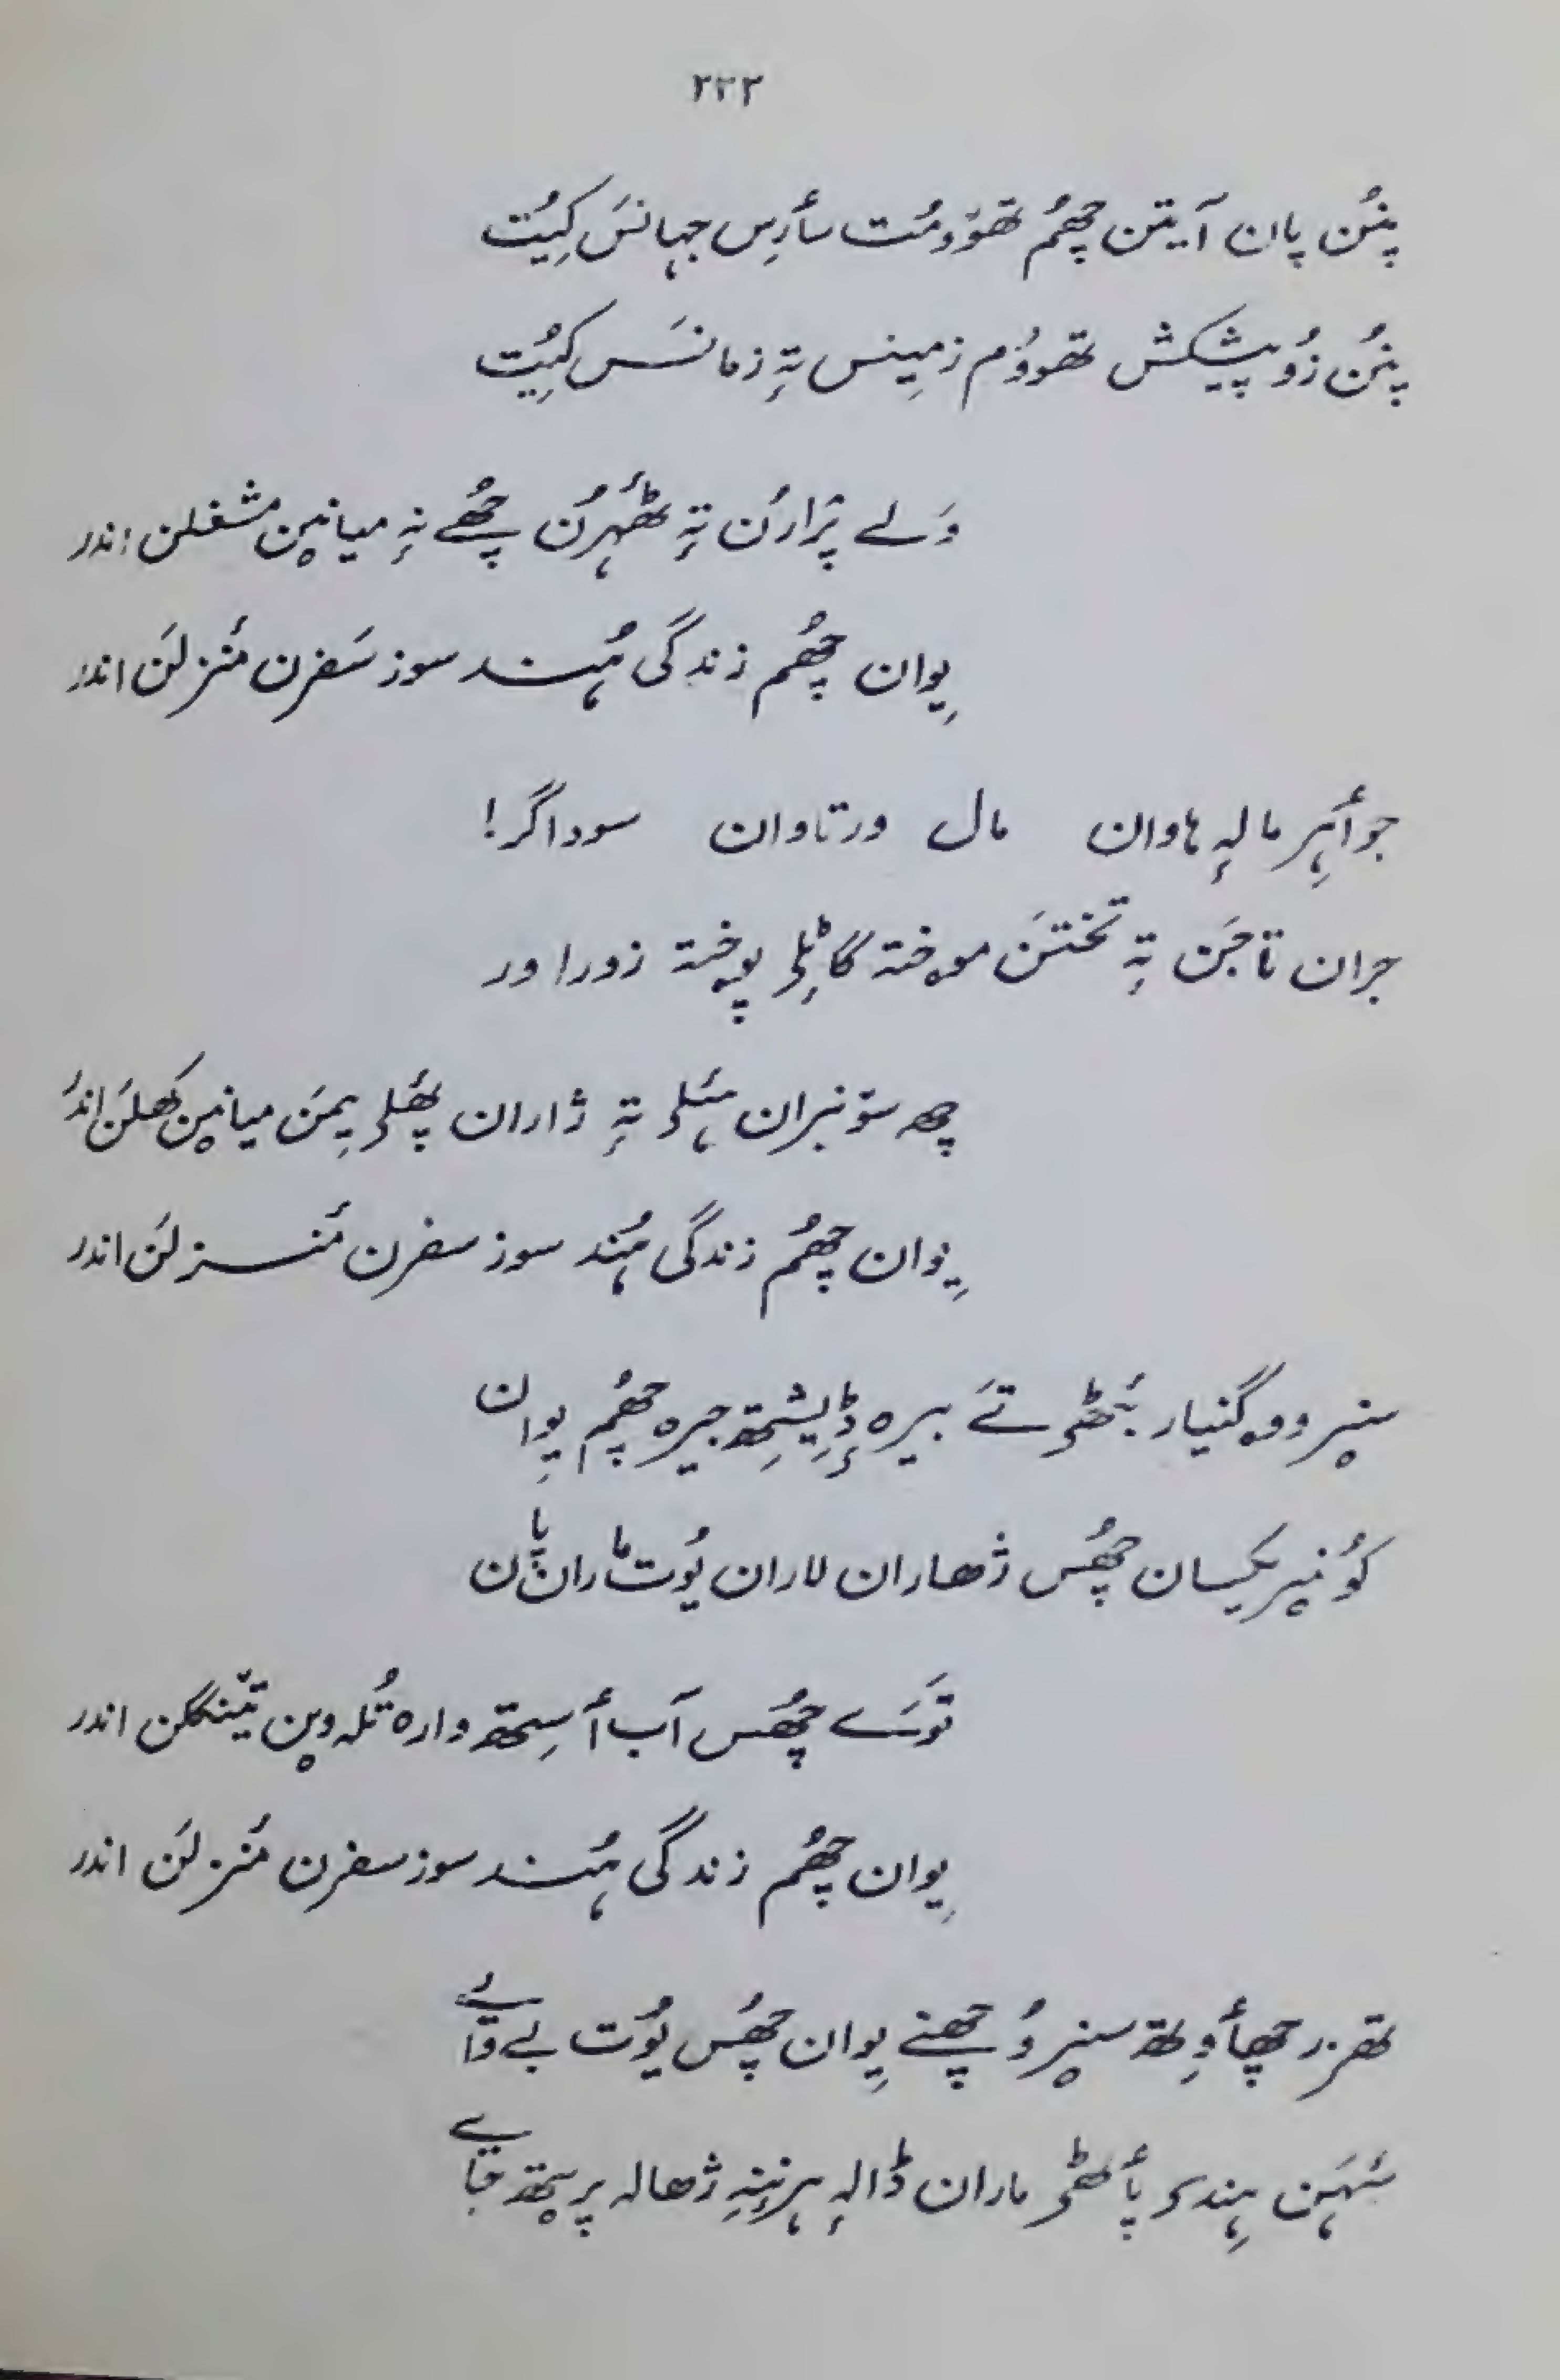 ۲۳۲
پنُن پان آیتن چھُم تھوومُت سأرِس جہانَس کیُت
پنُن زُو پیشکش تھووُم زمینس تہٕ زمانَس کیُت
وَلے پرٛارُن تہٕ ٹھٔہرُن چھُے نہٕ میانٮ۪ن مشغلن اندر
یِوان چھُم زندگی ہُند سوز سَفرن مٔنزلَن اندر
جوأہِر مالہٕ ہاوان مال ورتاوان سوداگر!
جران تاجَن تہٕ تختَن موختہٕ گاٹِلؠ پوختہٕ زوراور
چھ سۆنبران ۂلؠ تہٕ ژاران پھٔلؠ یِمَن میانٮ۪ن کھلَن اندر
یِوان چھُم زندگی ہُند سوز سفرن مٔنزلَن اندر
سنیر ووگنیار بٔٹھؠ تَے بیرہ ڈیٖشِتھ جیرہ چھُم یِوان
کُونیر یکسان چھُس ژھاران لاران یُوت ماران پان
تَوَے چھُس آب أسِتھ وارہ تُلہ وٮ۪ن تیٚنگلن اندر
یِوان چھُم زندگی ہُند سوز سفرن مٔنزلَن اندر
تھزر چھأوِتھ سنیر وُچھنے یِوان چھُس یُوت بے وایے
شہَن ہِندؠ پأٹھؠ ماران ڈالہٕ ہرنینہٕ ژھالہ پرٮ۪تھ جایے